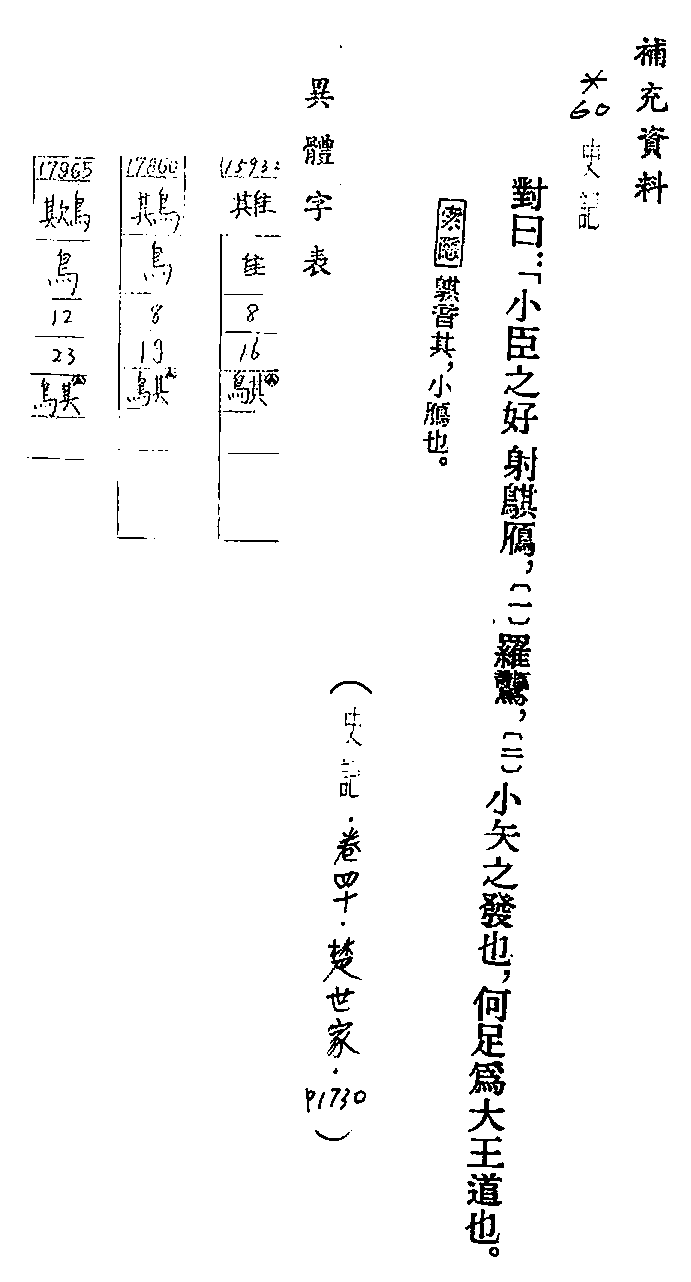 補充資料
*60 史記
對曰:「小臣之好射鶀鴈,〔一〕羅鸗,〔二〕小矢之發也,何足爲大王道也。
索隱 鶀音其,小鴈也。
(史記·卷四十·楚世家·P1730)
異體字表
隹
8
16
17860
鶀
鳥
8
19
17965
鳥
12
23